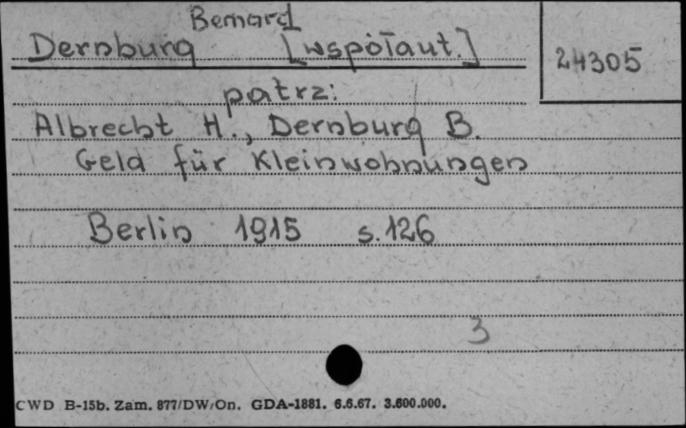 Bernard
Dernburg [współaut.]
24305
patrz:
Albrecht H., Dernburg B.
Geld für Kleinwohnungen
Berlin 1915 s.126
3
CWD B-15b. Zam. 877/DW/On. GDA-1881. 6.6.67. 3.600.000.